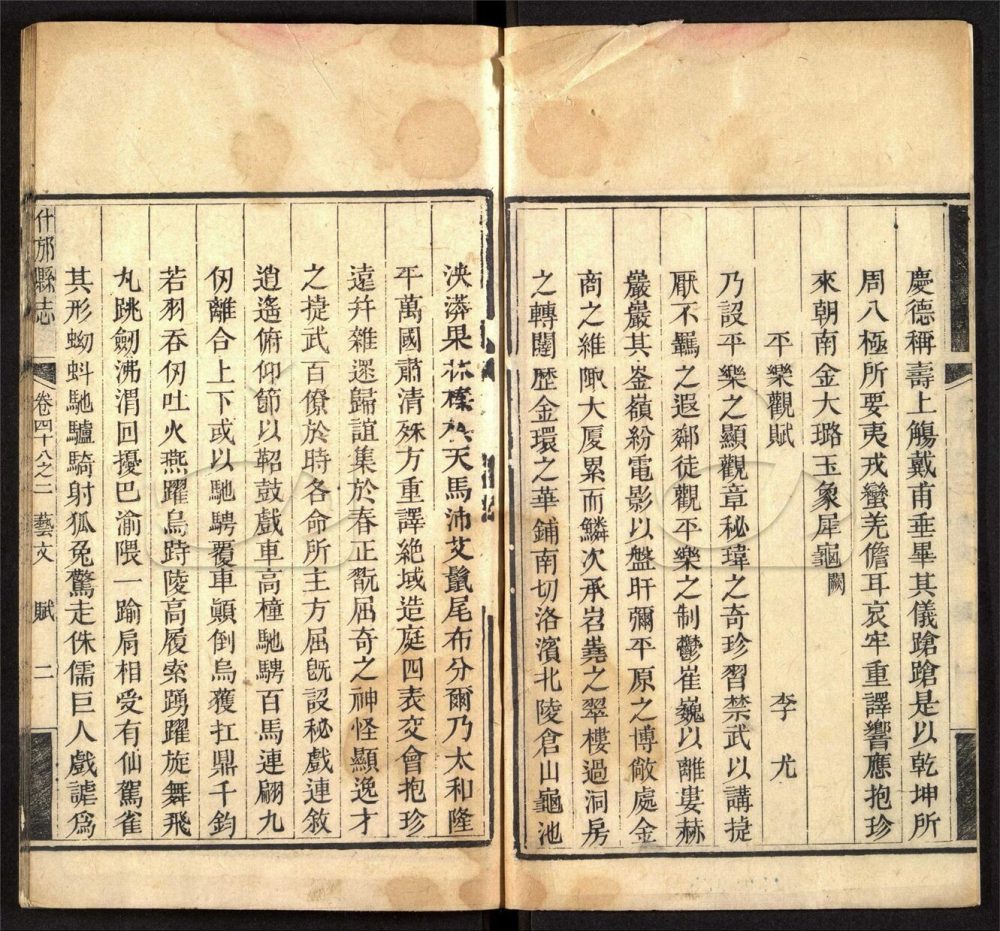 慶德稱壽上觴戴甫垂畢其儀蹌蹌是以乾坤所
周八極所要夷戎蠻羌儋耳哀牢重譯響應抱珍
來朝南金大璐玉象犀龜闕
平樂觀賦 李尤
乃設平樂之顯觀章秘瑋之奇珍習禁武以講捷
厭不羈之遐鄰徒觀平樂之制鬱崔巍以離婁赫
巖巖其崟嶺紛電影以盤盱彌平原之博敞處金
商之維陬大厦累而鱗次承岧嶤之翠樓過洞房
之轉闥歷金環之華鋪南切洛濱北陵倉山龜池
泱漭果林榛天馬沛艾鬣尾布分爾乃太和隆
平萬國肅清殊方重譯絶域造庭四表交會抱珍
遠幷雜遝歸誼集於春正翫屈奇之神怪顯逸才
之捷武百僚於時各命所主方届旣設秘戲連敘
逍遙俯仰節以鞀鼓戲車高橦馳騁百馬連翩九
仞離合上下或以馳騁覆車顛倒烏獲扛鼎千鈞
若羽吞仞吐火燕躍烏跱陵高履索踴躍旋舞飛
丸跳劒沸渭回擾巴渝隈一踰肩相受有仙駕雀
其形蚴蚪馳驢騎射狐兔驚走侏儒巨人戲謔爲
什邡縣志 卷四十八之二 藝文 賦 二